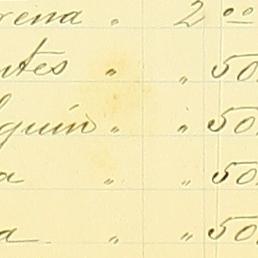 rena " 2 00
ntes " " 50
guin " " 50
a " " 50
a " " 50